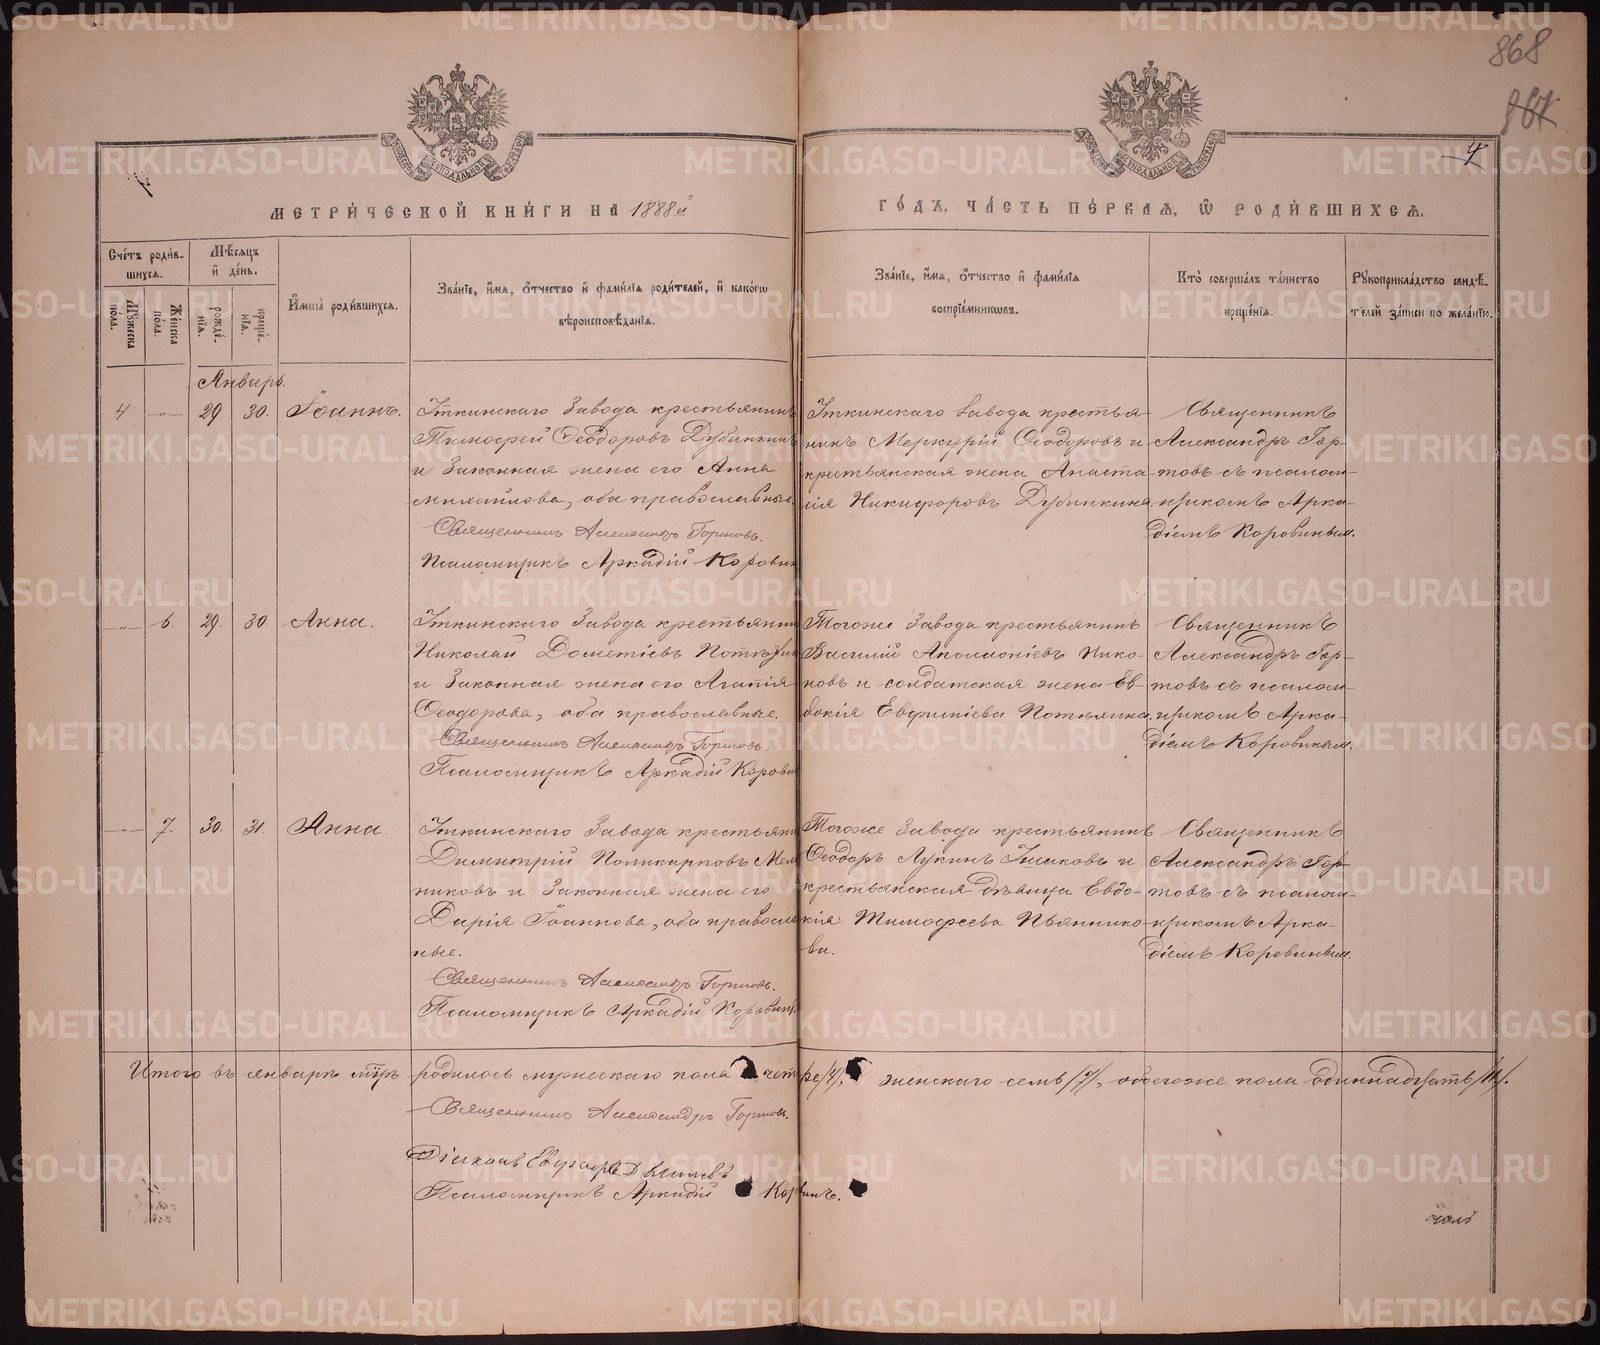 868
867
4
МЕТРИ́ЧЕСКОЙ КНИ́ГИ НА 1888й
ГО́ДЪ, ЧА́СТЬ ПЕ́РВАЯ, Ѿ РОДИ́ВШИХСЯ.
Сче́тъ роди́в-
шихся.
Му́жеска по́ла.
Же́нска по́ла.
Мѣ́сяцъ и҆ де́нь.
рожде́-
нїя.
креще́-
нїя.
И҆мена̀ роди́вшихся.
Зва́нїе, и҆́мя, ѻ҆́тчество и҆ фами́лїя роди́телей, и҆ како́гѡ
вѣроисповѣ́данїя.
Зва́нїе, и҆́мя, ѻ҆́тчество и҆ фами́лїя
воспрїе́мникѡвъ.
Кто̀ соверша́лъ та́инство
креще́нїя.
Рꙋкоприкла́дство свидѣ́-
телей за́писи по жела́нїю.
Январь.
4 -„- 29. 30. Іоаннъ.
Иткинскаго Завода крестьянинъ
Тимофей Ѳеодоровъ Дубинкинъ
и Законная жена его Анна
Михайлова, оба православные.
Священникъ Александръ Гортовъ.
Псаломщикъ Аркадій Коровин
Иткинскаго Завода крестья-
нинъ Меркурій Ѳеодоровъ и
крестьянская жена Анаста-
сія Никифорова Дубинкина.
Священникъ
Александръ Гор-
товъ съ псалом-
щикомъ Арка-
діемъ Коровинымъ.
-„- 6. 29. 30 Анна.
Иткинскаго Завода крестьянин
Николай Дометіевъ
и Законная жена его Агапія
Ѳеодорова, оба православные.
Священникъ Александръ Гортовъ.
Псаломщикъ Аркадій Коровин
Тогоже Завода крестьянинъ
Василій Аполлоніевъ Нико-
новъ и солдатская жена Ев-
докія Евфиміева
Священникъ
Александръ Гор-
товъ съ псалом-
щикомъ Арка-
діемъ Коровинымъ.
-„- 7. 30. 31. Анна.
Иткинскаго Завода крестьяни
Димитрій Поликарповъ Мель
никовъ и Законная жена его
Дарія Іоаннова, оба правосла
ные.
Священникъ Александръ Гортовъ.
Псаломщикъ Аркадій Коровинъ.
Тогоже Завода крестьянинъ
Ѳеодоръ Лукинъ и
крестьянская дѣвица Евдо-
кія Тимофеева Пьянико-
ва.
Священникъ
Александръ Гор-
товъ съ псалом-
щикомъ Арка-
діемъ Коровинымъ.
Итого въ январѣ мцѣ родилось мужескаго пола четыре /4/, женскаго семь /7/, обоегоже пола одиннадцать /11/.
Священникъ Александръ Гортовъ.
Діаконъ
Псаломщикъ Аркадій Коровинъ.